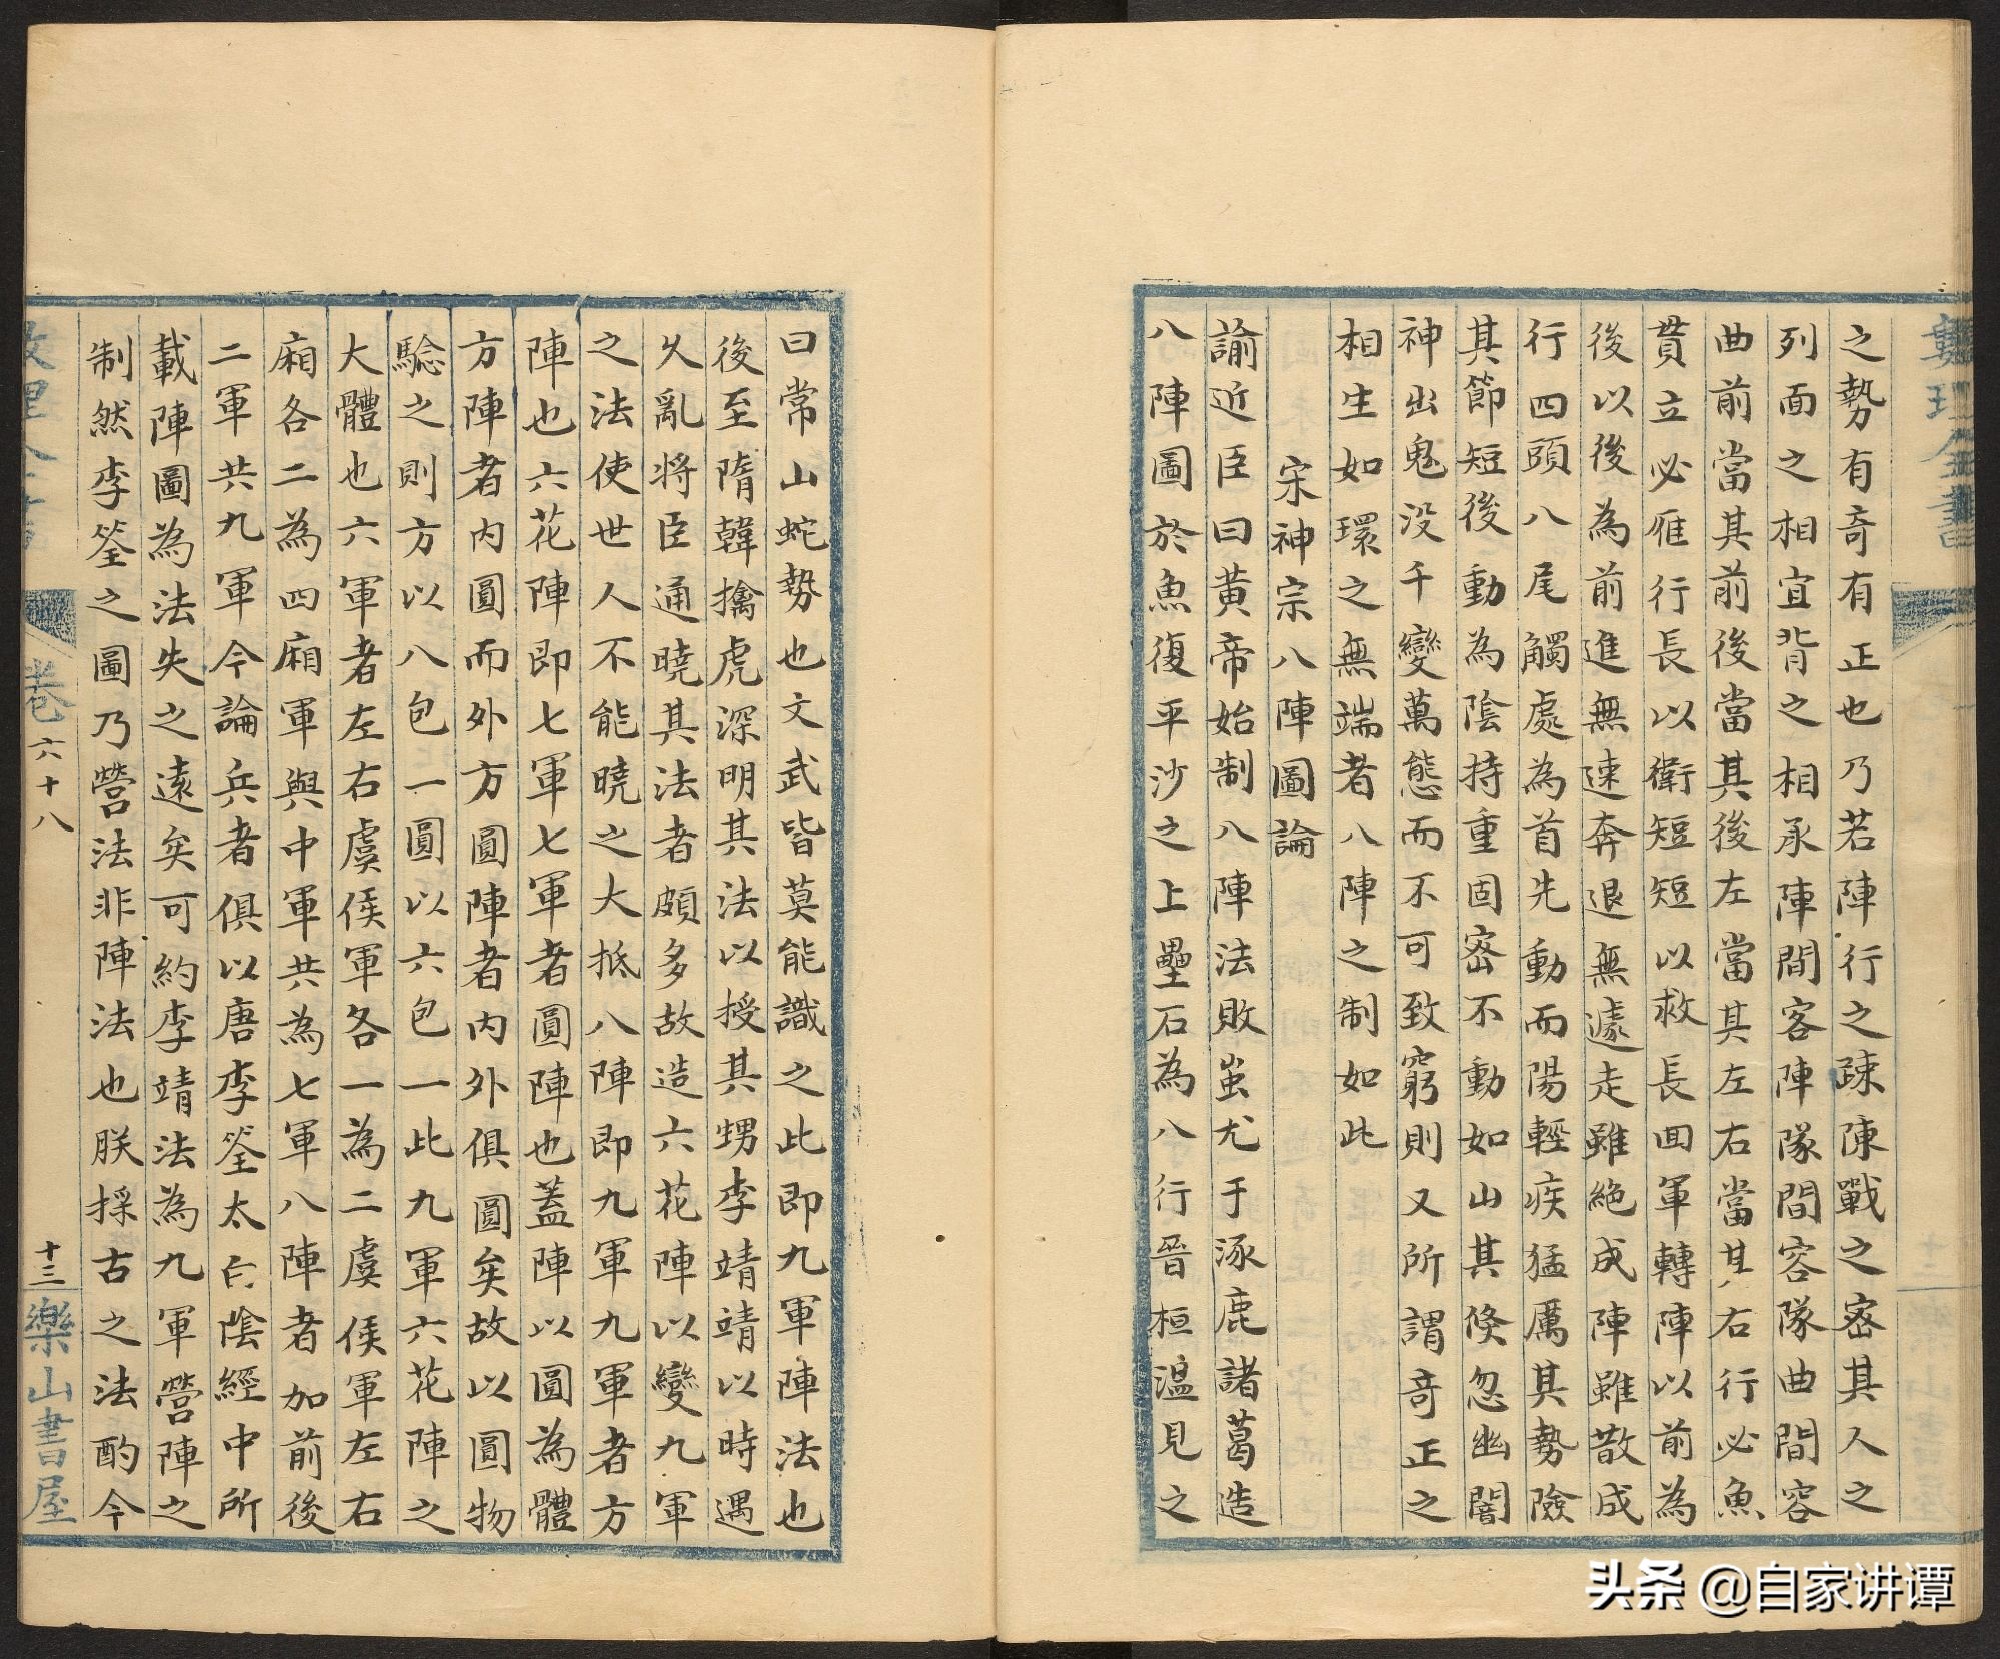 之勢有奇有正也乃若陣行之疎陳戰之密其人之
列面之相宜背之相承陣間容陣隊間容隊曲間容
曲前當其前後當其後左當其左右當其右行必魚
貫立必雁行長以衛短短以救長回軍轉陣以前為
後以後為前進無速奔退無遽走雖絶成陣雖散成
行四頭八尾觸處為首先動而陽輕疾猛厲其勢險
其節短後動為陰持重固密不動如山其倏忽幽闇
神出鬼没千變萬態而不可致窮則又所謂竒正之
相生如環之無端者八陣之制如此
宋神宗八陣圖論
諭近臣曰黄帝始制八陣法敗蚩尤于涿鹿諸葛造
八陣圖於魚復平沙之上壘石為八行晉桓溫見之
曰常山蛇勢也文武皆莫能識之此即九軍陣法也
後至隋韓擒虎深明其法以授其甥李靖靖以時遇
乆亂將臣通曉其法者頗多故造六花陣以變九軍
之法使世人不能曉之大抵八陣即九軍九軍者方
陣也六花陣即七軍七軍者圓陣也蓋陣以圓為體
方陣者内圓而外方圓陣者内外俱圓矣故以圓物
驗之則方以八包一圓以六包一此九軍六花陣之
大體也六軍者左右虞侯軍各一為二虞侯軍左右
廂各二為四廂軍與中軍共為七軍八陣者加前後
二軍共九軍今論兵者俱以唐李筌太白陰經中所
載陣圖為法失之遠矣可約李靖法為九軍營陣之
制然李筌之圖乃營法非陣法也朕採古之法酌今
卷六十八
十三
樂山書屋
头条 @自家讲谭